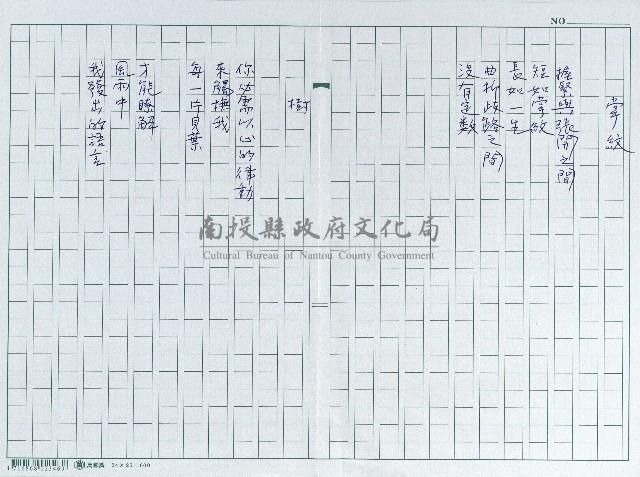 NO.
掌紋
握緊與張開之間
短如掌紋
長如一生
曲折歧路之間
沒有定數
樹
你必需以心的律動
來觸撫我
每一片貝葉
才能瞭解
風雨中
我發出的語言
南投縣政府文化局
Cultural Bureau of Nantou County Government
24×25=600